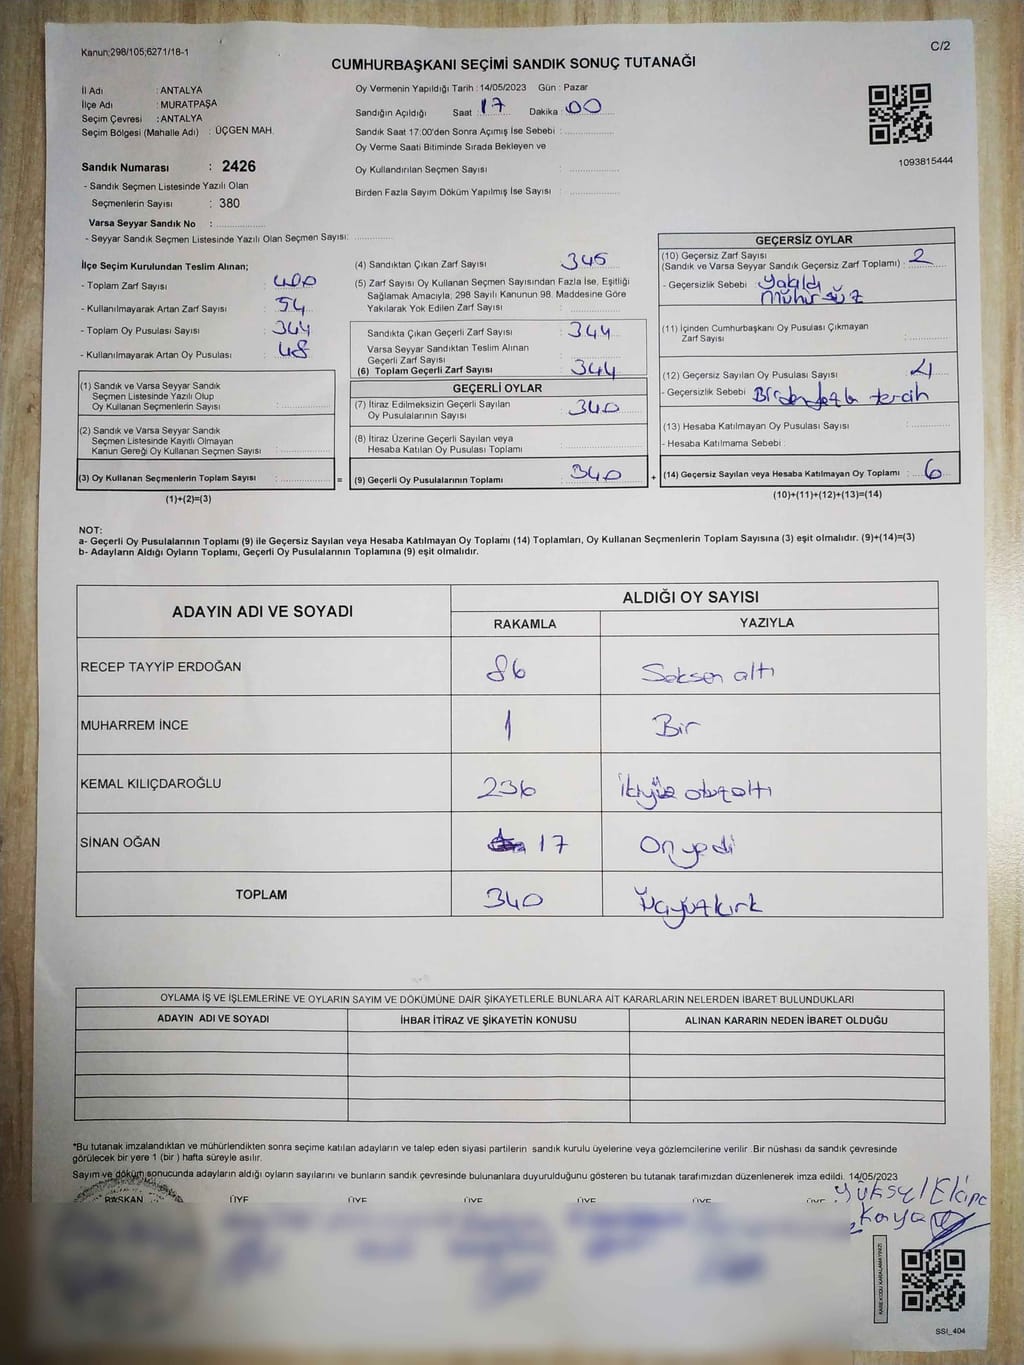 Kanun:298/105;6271/18-1
C/2
CUMHURBAŞKANI SEÇİMİ SANDIK SONUÇ TUTANAĞI
İl Adı : ANTALYA
İlçe Adı : MURATPAŞA
Seçim Çevresi : ANTALYA
Seçim Bölgesi (Mahalle Adı) : ÜÇGEN MAH.
Sandık Numarası : 2426
- Sandık Seçmen Listesinde Yazılı Olan
Seçmenlerin Sayısı : 380
Varsa Seyyar Sandık No :
- Seyyar Sandık Seçmen Listesinde Yazılı Olan Seçmen Sayısı:
Oy Vermenin Yapıldığı Tarih : 14/05/2023 Gün : Pazar
Sandığın Açıldığı Saat 17 Dakika : 00
Sandık Saat 17:00'den Sonra Açımış İse Sebebi :
Oy Verme Saati Bitiminde Sırada Bekleyen ve
Oy Kullandırılan Seçmen Sayısı :
Birden Fazla Sayım Döküm Yapılmış İse Sayısı :
1093815444
İlçe Seçim Kurulundan Teslim Alınan;
- Toplam Zarf Sayısı : 400
- Kullanılmayarak Artan Zarf Sayısı : 54
- Toplam Oy Pusulası Sayısı : 344
- Kullanılmayarak Artan Oy Pusulası : 48
(1) Sandık ve Varsa Seyyar Sandık
Seçmen Listesinde Yazılı Olup
Oy Kullanan Seçmenlerin Sayısı :
(2) Sandık ve Varsa Seyyar Sandık
Seçmen Listesinde Kayıtlı Olmayan
Kanun Gereği Oy Kullanan Seçmen Sayısı :
(3) Oy Kullanan Seçmenlerin Toplam Sayısı : =
(1)+(2)=(3)
(4) Sandıktan Çıkan Zarf Sayısı : 345
(5) Zarf Sayısı Oy Kullanan Seçmen Sayısından Fazla İse, Eşitliği
Sağlamak Amacıyla, 298 Sayılı Kanunun 98. Maddesine Göre
Yakılarak Yok Edilen Zarf Sayısı :
Sandıkta Çıkan Geçerli Zarf Sayısı : 344
Varsa Seyyar Sandıktan Teslim Alınan
Geçerli Zarf Sayısı :
(6) Toplam Geçerli Zarf Sayısı : 344
GEÇERLİ OYLAR
(7) İtiraz Edilmeksizin Geçerli Sayılan
Oy Pusulalarının Sayısı : 340
(8) İtiraz Üzerine Geçerli Sayılan veya
Hesaba Katılan Oy Pusulası Toplamı :
(9) Geçerli Oy Pusulalarının Toplamı : 340 +
GEÇERSİZ OYLAR
(10) Geçersiz Zarf Sayısı
(Sandık ve Varsa Seyyar Sandık Geçersiz Zarf Toplamı) : 2
- Geçersizlik Sebebi : Yakıldı
Mühürsüz
(11) İçinden Cumhurbaşkanı Oy Pusulası Çıkmayan
Zarf Sayısı :
(12) Geçersiz Sayılan Oy Pusulası Sayısı : 4
- Geçersizlik Sebebi : Birden fazla tercih
(13) Hesaba Katılmayan Oy Pusulası Sayısı :
- Hesaba Katılmama Sebebi :
(14) Geçersiz Sayılan veya Hesaba Katılmayan Oy Toplamı : 6
(10)+(11)+(12)+(13)=(14)
NOT:
a- Geçerli Oy Pusulalarının Toplamı (9) ile Geçersiz Sayılan veya Hesaba Katılmayan Oy Toplamı (14) Toplamları, Oy Kullanan Seçmenlerin Toplam Sayısına (3) eşit olmalıdır. (9)+(14)=(3)
b- Adayların Aldığı Oyların Toplamı, Geçerli Oy Pusulalarının Toplamına (9) eşit olmalıdır.
ADAYIN ADI VE SOYADI
ALDIĞI OY SAYISI
RAKAMLA YAZIYLA
RECEP TAYYİP ERDOĞAN 86 Seksen altı
MUHARREM İNCE 1 Bir
KEMAL KILIÇDAROĞLU 236 İkiyüz otuzaltı
SİNAN OĞAN 17 Onyedi
TOPLAM 340 Üçyüzkırk
OYLAMA İŞ VE İŞLEMLERİNE VE OYLARIN SAYIM VE DÖKÜMÜNE DAİR ŞİKAYETLERLE BUNLARA AİT KARARLARIN NELERDEN İBARET BULUNDUKLARI
ADAYIN ADI VE SOYADI İHBAR İTİRAZ VE ŞİKAYETİN KONUSU ALINAN KARARIN NEDEN İBARET OLDUĞU
*Bu tutanak imzalandıktan ve mühürlendikten sonra seçime katılan adayların ve talep eden siyasi partilerin sandık kurulu üyelerine veya gözlemcilerine verilir. Bir nüshası da sandık çevresinde
görülecek bir yere 1 (bir ) hafta süreyle asılır.
Sayım ve döküm sonucunda adayların aldığı oyların sayılarını ve bunların sandık çevresinde bulunanlara duyurulduğunu gösteren bu tutanak tarafımızdan düzenlenerek imza edildi. 14/05/2023
BAŞKAN ÜYE ÜYE ÜYE ÜYE ÜYE ÜYE
Yüksel
Kaya
KAREKODU KARALAMAYINIZ
SSI_404